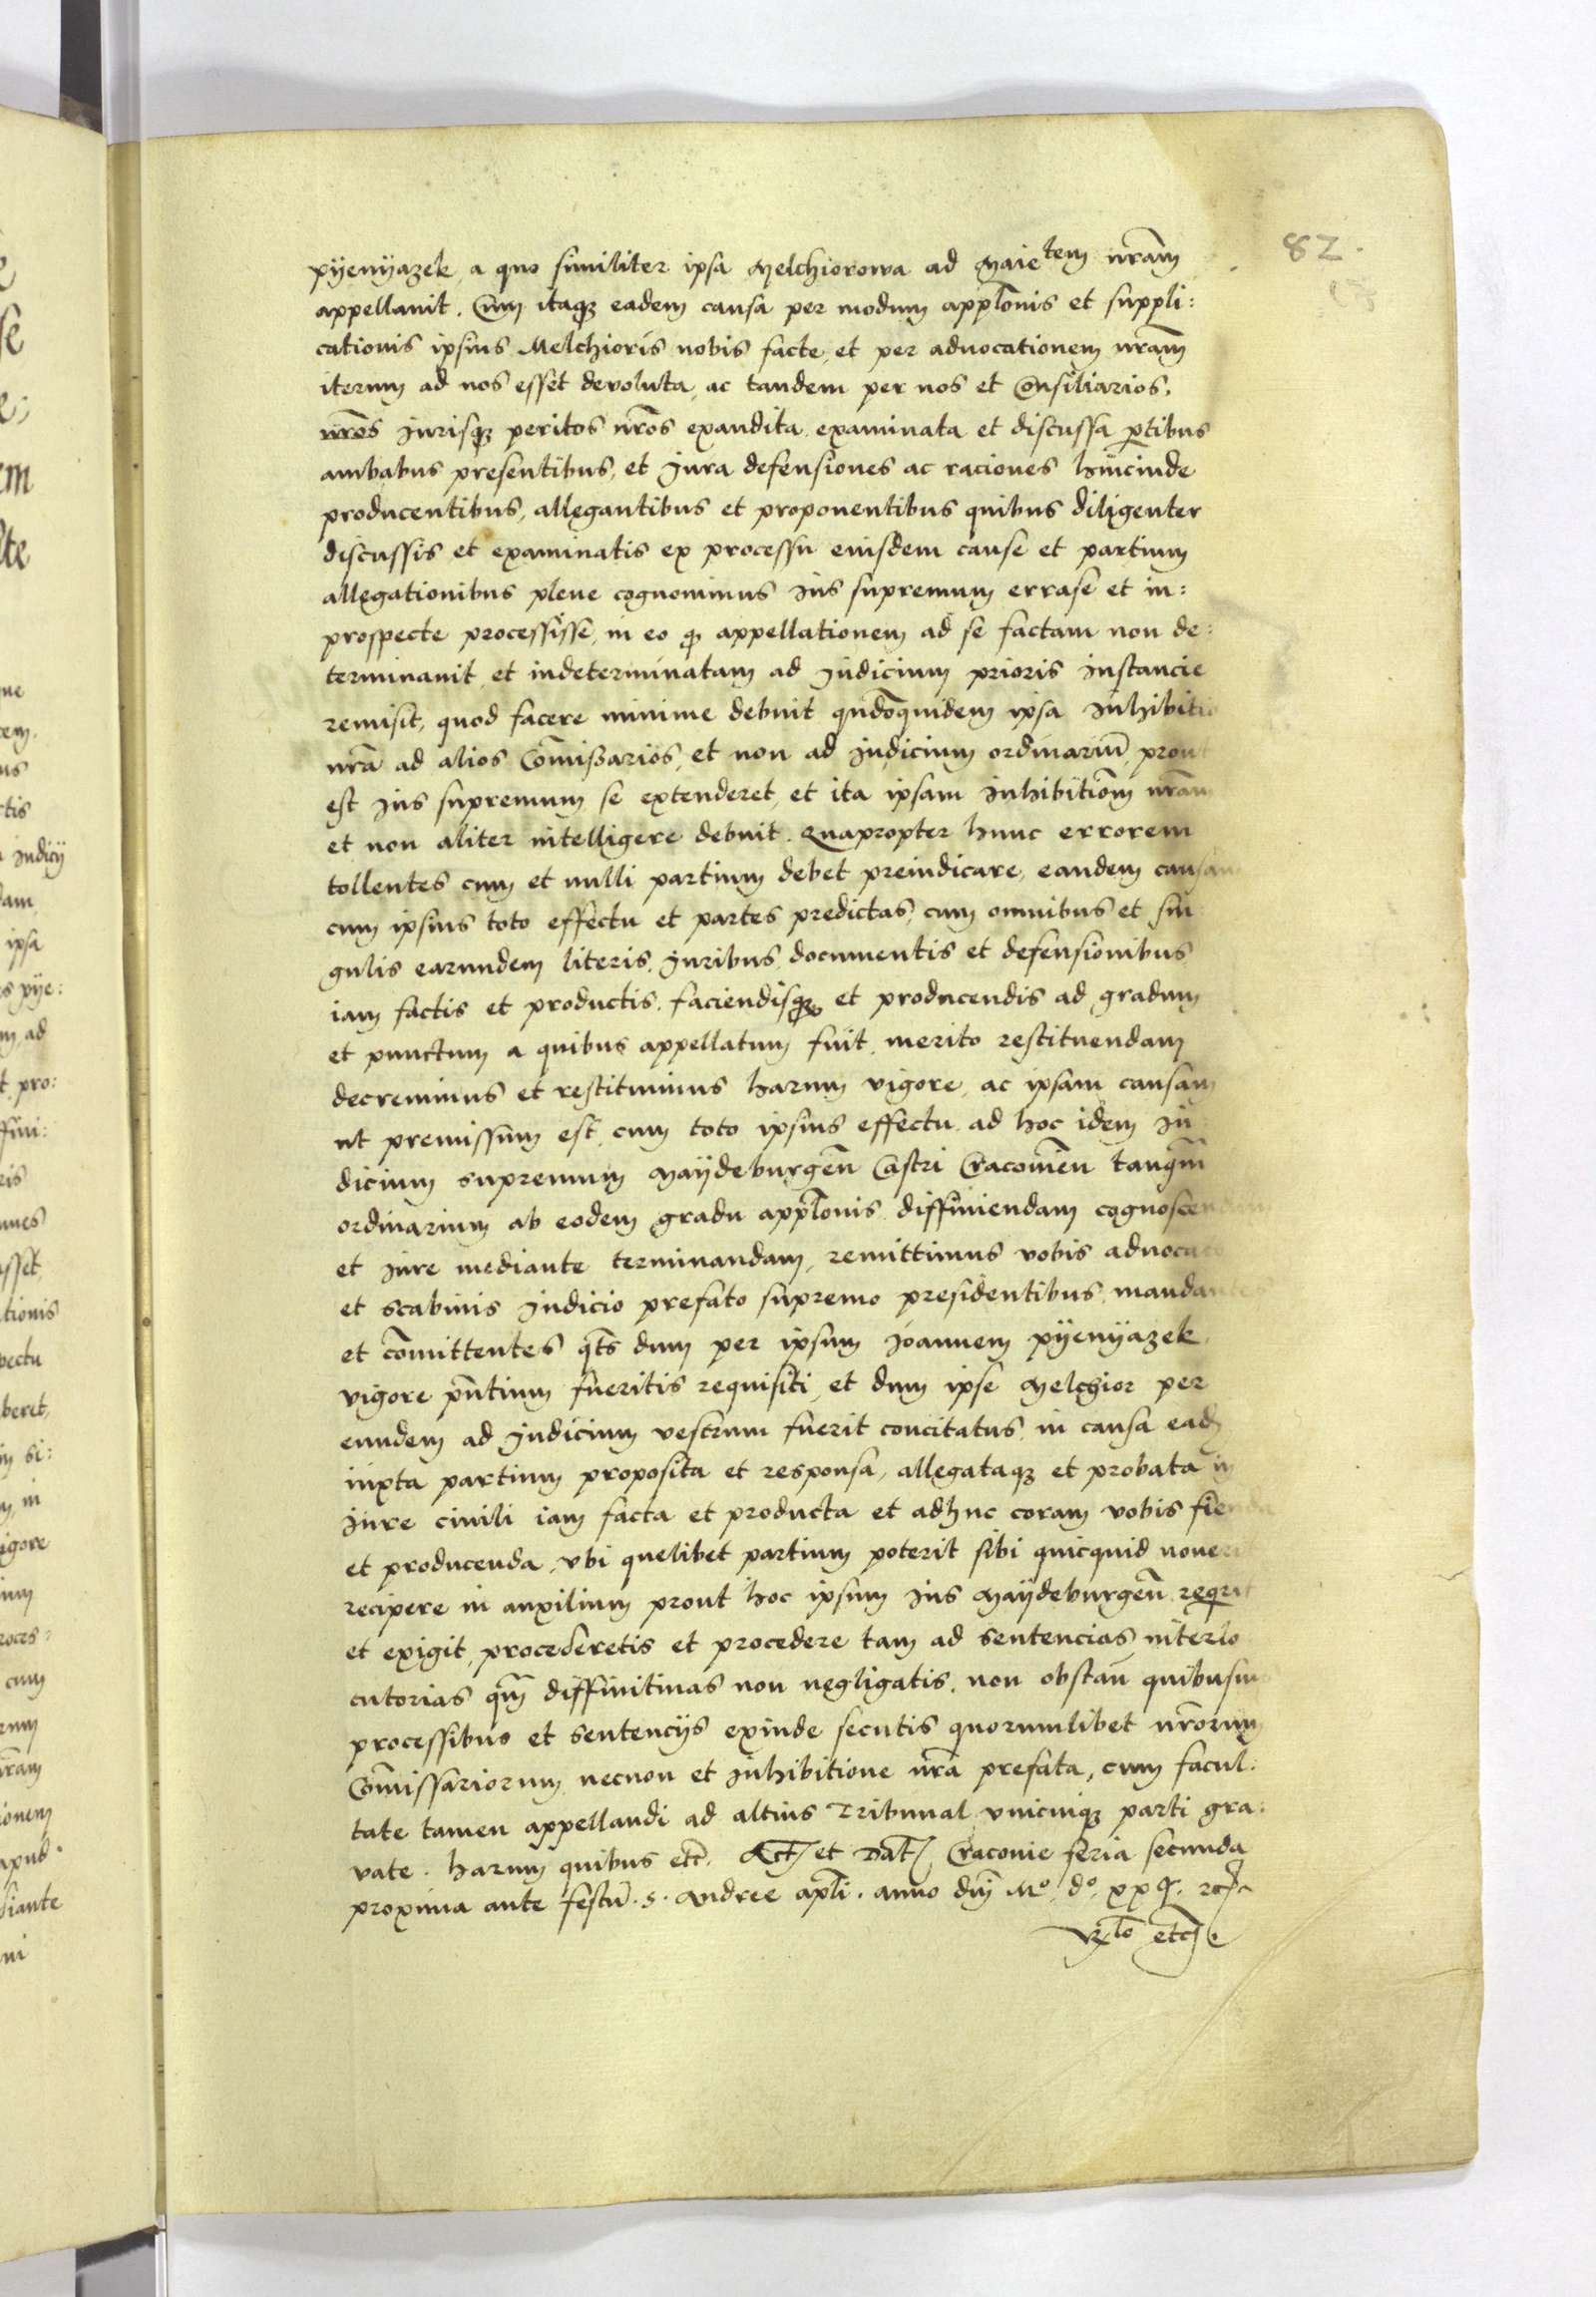 82.
pÿenÿazek a quo similiter ipsa Melchiorowa ad Maietem nr̃am
appellauit. Cum itaqz eadem causa per modum appl̃onis et suppli:
cationis ipsius Melchioris nobis facte, et per aduocationem nr̃am
iterum ad nos esset deuoluta, ac tandem per nos et Consiliarios,
nr̃os Jurisqz peritos nr̃os exaudita, examinata et discussa ptibus
ambabus presentibus, et Jura defensiones ac raciones hincinde
producentibus, allegantibus et proponentibus quibus diligenter
discussis et examinatis ex processu eiusdem cause et partium
allegationibus plene cognouimus Jus supremum errase et in:
prospecte processisse, in eo q appellationem ad se factam non de:
terminauit et indeterminatam ad Judicium prioris instancie
remisit, quod facere minime debuit qñdoquidem ipsa Inhibitio
nr̃a ad alios Com̃issarios, et non ad Judicium ordinariũ, prout
est Jus supremum se extenderet, et ita ipsam Inhibitiom̃ nr̃am
et non aliter intelligere debuit. Quapropter hunc errorem
tollentes cum et nulli partium debet preiudicare, eandem causam
cum ipsius toto effectu et partes predictas, cum omnibus et sin
gulis earundem literis, Juribus, documentis et defensionibus
iam factis et productis, faciendisqz et producendis ad gradum
et punctum a quibus appellatum fuit, merito restituendam
decreuimus et restituimus harum vigore, ac ipsam causam
ut premissum est, cum toto ipsius effectu, ad hoc idem Ju
dicium supremum Maÿdeburgeñ Castri Cracouieñ tanqm̃
ordinarium ab eodem gradu appl̃onis diffiniendam cognoscendam
et Jure mediante terminandam, remittimus vobis aduocato
et scabinis Judicio prefato supremo presidentibus, mandantes
et com̃ittentes qt̃s dum per ipsum Joannem pÿenÿazek
vigore pñtium fueritis requisiti, et dum ipse Melchior per
eundem ad Judicium vestrum fuerit concitatus in causa ead
iuxta partium proposita et responsa, allegataqz et probata in
Jure ciuili iam facta et producta et adhuc coram vobis fienda
et producenda, vbi quelibet partium poterit sibi quicquid nouerit
recipere in auxilium prout hoc ipsum Jus Maÿdeburgeñ reqrit
et exigit, procederetis et procedere tam ad sentencias interlo
cutorias qm̃ diffinitiuas non negligatis, non obstañ quibusuis
processibus et sentencijs exinde secutis quorumlibet nr̃orum
Com̃issariorum necnon et Inhibitione nr̃a prefata, cum facul:
tate tamen appellandi ad altius Tribunal vnicuiqz parti gra:
vate. Harum quibus etc̃. Act et Dat Cracouie feria secunda
proxima ante festũ. S. Andree apl̃i. anno dñi Mo. do. xx